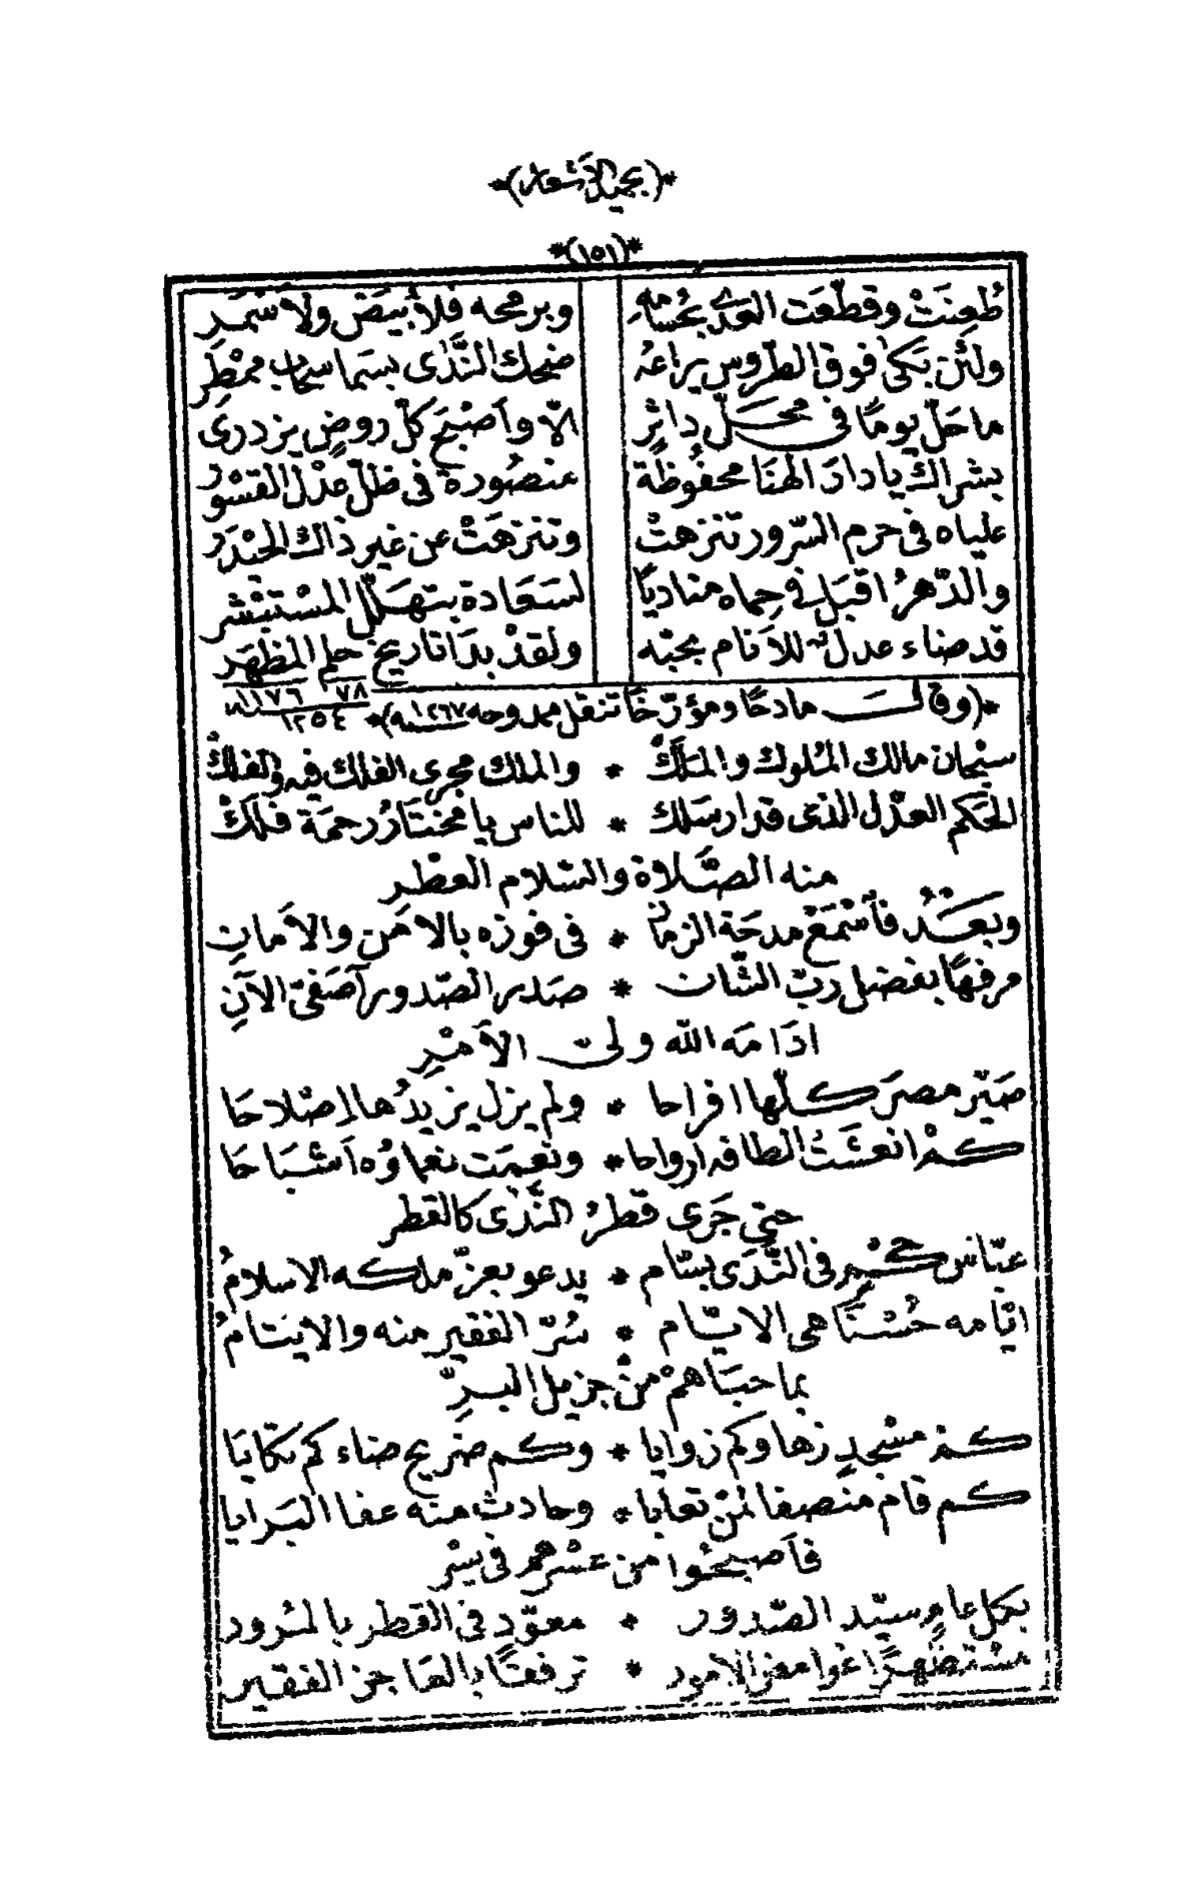 *(بحيد الأشعار)*
*(١٥١)*
طُعِنَتْ وقطّعَت العدَى بحُسَامهِ وبرمحه فلأبيَضٍ ولأسْمَرِ
ولئن بَكَى فوق الطّروس يراعهُ ضحك النَّدَى بسَما سحاب ممْطِرِ
ما حَلّ يومًا فى محَلّ دِاثرٍ الّا وأصْبَحَ كلّ روضٍ يزدرى
بشراك يا دارَ الهنَا محفُوظَة منصُورة فى ظلّ عدْل القسْوَرِ
علياه فى حرم السّرور تنزهتْ وتنزهَتْ عن غير ذاك الحَيْدَرِ
والدّهرُ اقبَل فى حِماه مناديًا لسَعَادة بتهلّل المسْتبْشرِ
قد ضاء عدل للأنام بحبّه ولقدْ بدَا تاريخ حلم المظهَر
٧٨ ١١٧٦
١٢٥٤
*(وقالــــ مادحًا ومؤرّخًا تنقل ممدوحه ١٢٦٧سنه)*
سبْحان مالك المُلوك والمَلَكْ * والملك مجرى الفلك فيه والفلكْ
الحَكم العدْل الذى قد ارسَلك * للناس يا مختَارُ رحمَة فلَكْ
منه الصَّلاة والسّلام العطْرِ
وبَعْدُ فأسْمَعْ مدحَة الزمانِ * فى فوزه بالأمَن والأَمانِ
مرفهًا بفضل ربّ الشّان * صَدر الصّدور آصَفىّ الآنِ
ادَامَه الله ولىّ الأَمْرِ
صَيّر مصرَ كلّها افراحا * ولم يزل يزيدُها إصْلاحَا
كمْ انعشَتْ الطافه ارواحا * ونعِمَت نعماؤه أشْبَاحَا
حتى جَرَى قطرُ النَّدَى كالقطر
عبّاسُ فى النَّدَى بسّام * يدعو بعزّ ملكه الاسلامُ
ايّامه حُسْنًا هى الايّام * سُرّ الفقير منه والايتامُ
بما حبَاهمْ منْ جزيل البِرِّ
كم مسْجدٍ زها وكم زوايا * وكم ضريح ضاء كم تكايَا
كم قامَ منصفا لمنْ تعايا * وحادث منه عفا البَرايا
فأصبحُوا من عسْرهم فى يسْرِ
بكل عامٍ سيّد الصّدور * معوّدٍ فى القطر بالمُرور
مستظهرًا غوامض الامور * ترفقًا بالعَاجز الفقير